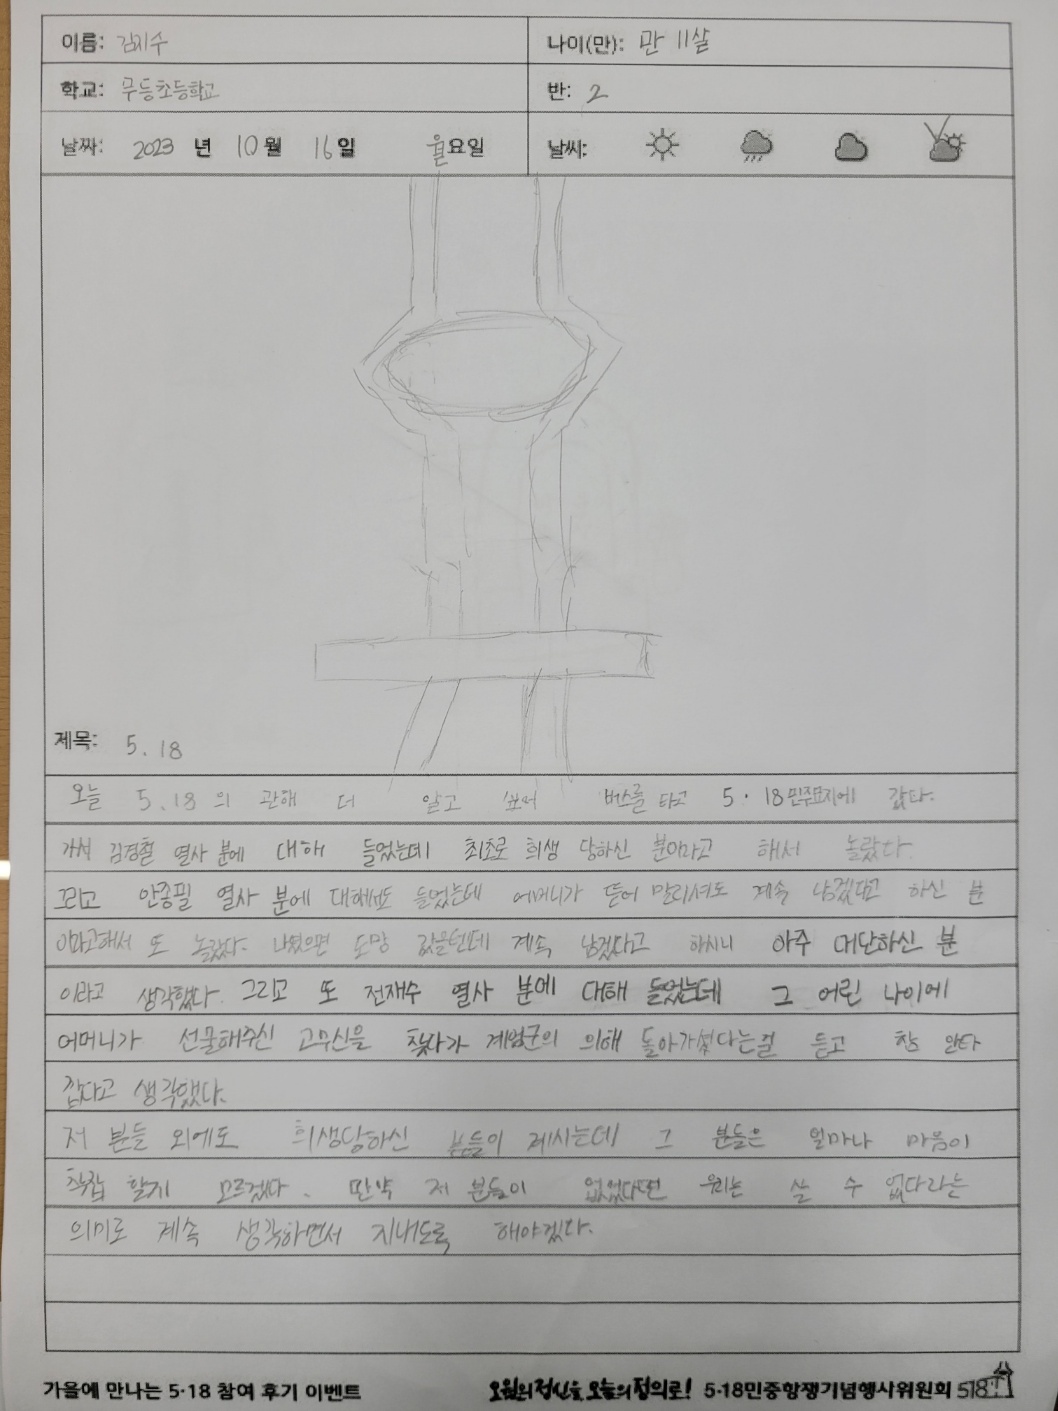 이름: 김지수 나이(만): 만 11살
학교: 무등초등학교 반: 2
날짜: 2023 년 10월 16일 월요일 날씨:
제목: 5.18
오늘 5.18의 관해 더 알고 버스를 타고 5·18민주묘지에 갔다.
가서 김경철 열사 분에 대해 들었는데 최초로 희생 당하신 분이라고 해서 놀랐다.
그리고 안종필 열사 분에 대해서도 들었는데 어머니가 뜯어 말리셔도 계속 남겠다고 하신 분
이라고해서 또 놀랐다. 나였으면 도망 갔을텐데 계속 남겠다고 하시니 아주 대단하신 분
이라고 생각했다. 그리고 또 전재수 열사 분에 대해 들었는데 그 어린 나이에
어머니가 선물해주신 고무신을 찾다가 계엄군의 의해 돌아가셨다는걸 듣고 참 안타
깝다고 생각했다.
저 분들 외에도 희생당하신 분들이 계시는데 그 분들은 얼마나 마음이
착잡 할게 모르겠다. 만약 저 분들이 없었다면 우리는 살 수 없다라는
의미로 계속 생각하면서 지내도록 해야겠다.
가을에 만나는 5·18 참여 후기 이벤트 오월의 정신을 오늘의 정의로! 5·18민중항쟁기념행사위원회 518